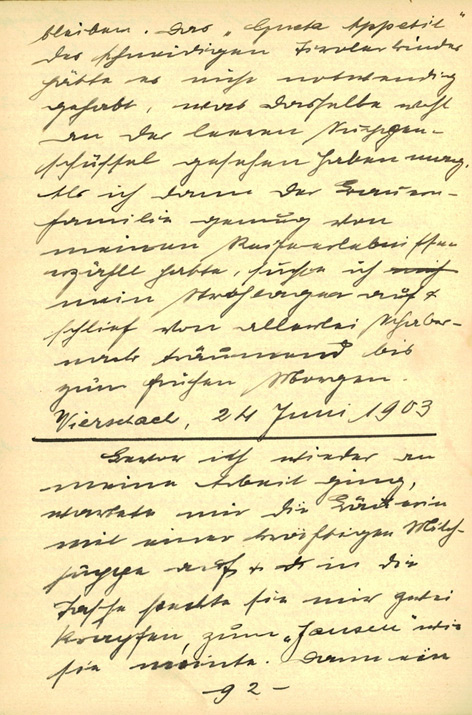 bleiben. Das „Guck Appetit"
des schneidigen Tirolerkindes
hätte es nicht notwendig
gehabt, was dasselbe wohl
an der leeren Suppen-
schüssel gesehen haben mag.
Als ich dann der Bauern-
familie genug von
meinen Reiseerlebnissen
erzählt hatte, suchte ich
mein Strohlager auf &
schlief von allerlei Schaber-
nack träumend bis
zum frühen Morgen.
Vierschach, 24 Juni 1903
Bevor ich wieder an
meine Arbeit ging,
wartete mir die Bäuerin
mit einer kräftigen Milch-
suppe auf, & in die
Tasche steckte sie mir zwei
Krapfen, zum „Jausen" wie
sie meinte. Dann ein
- 92 -